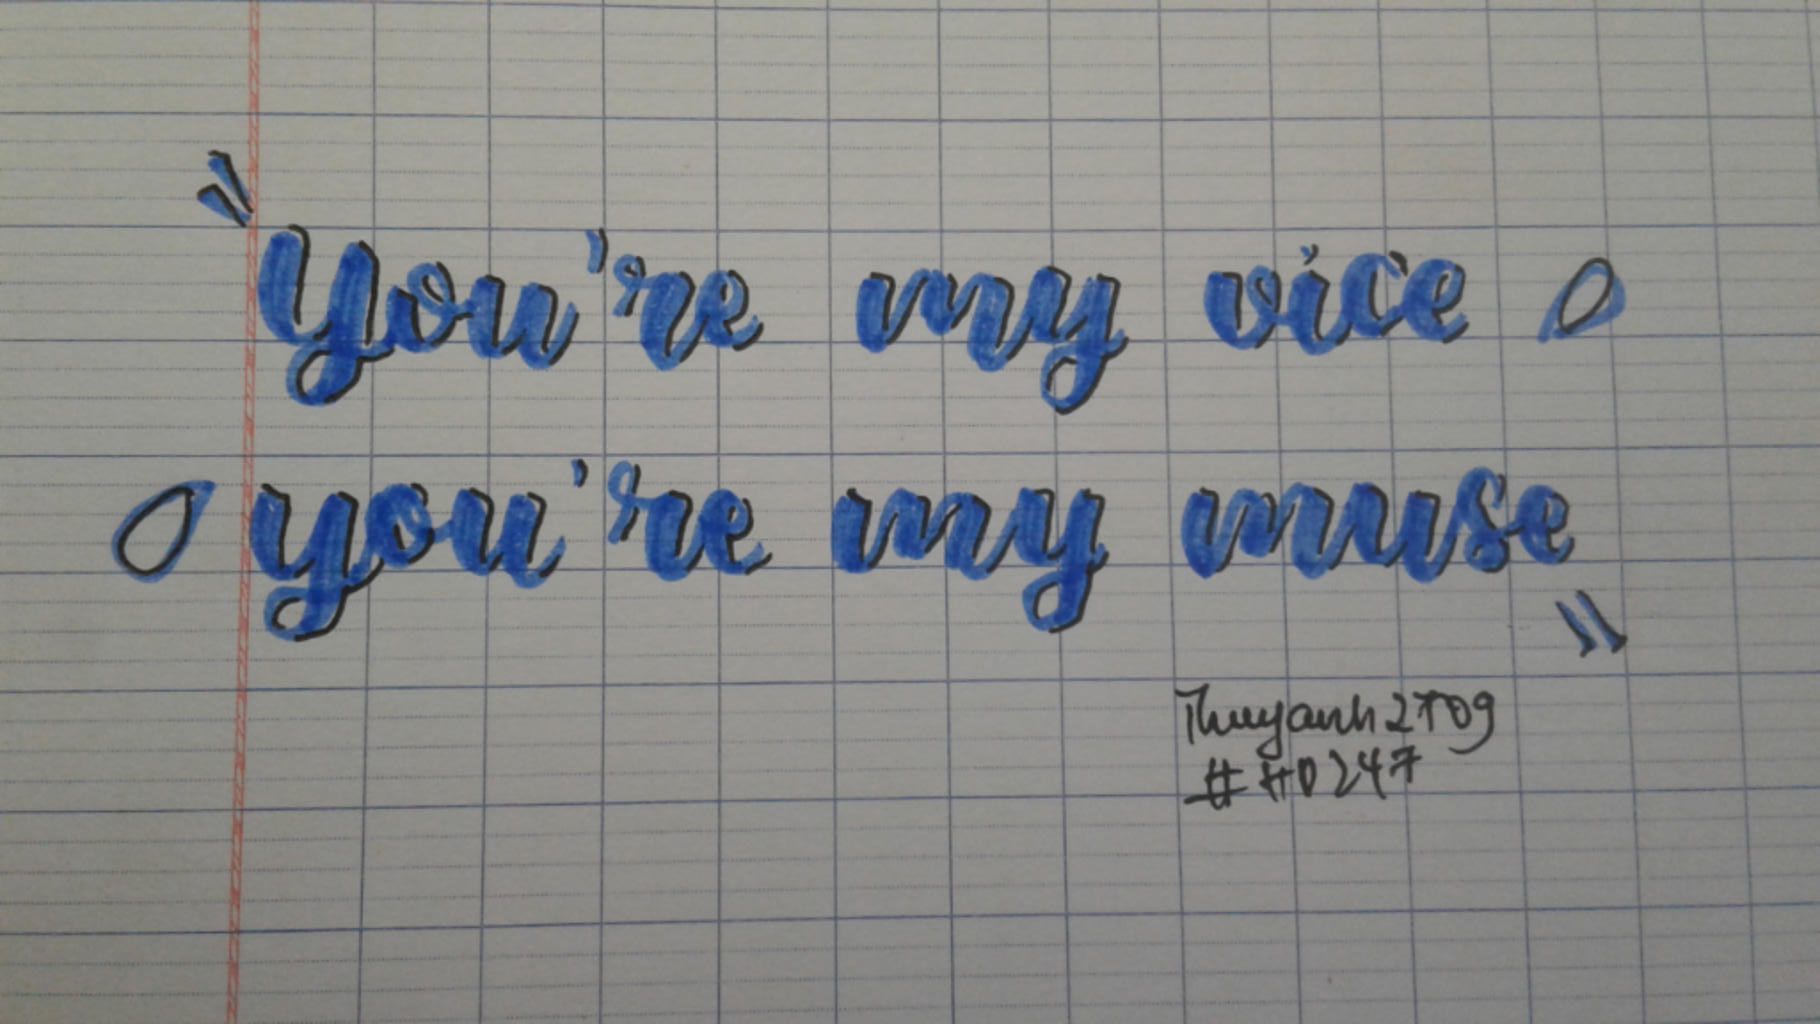 "You're my vice
you're my muse"
Thuyanh2709
##0247